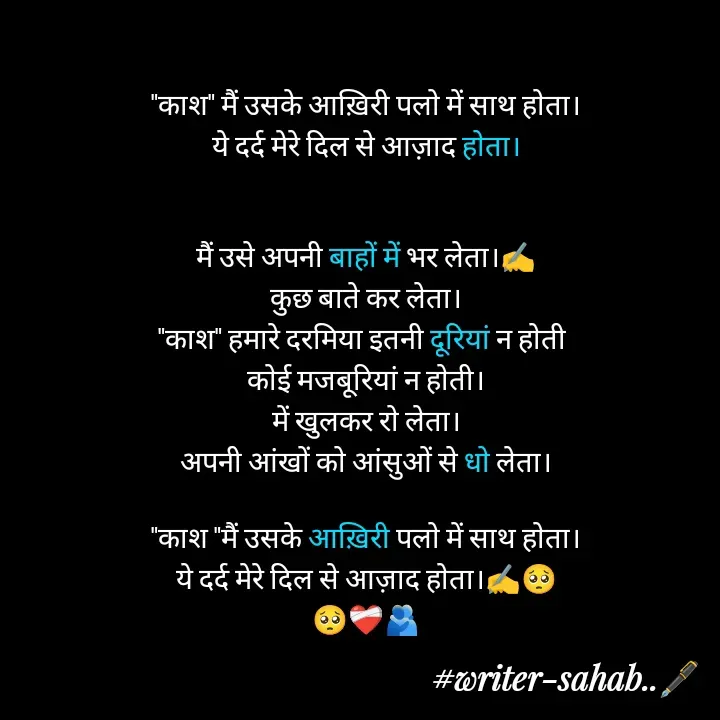 "काश" मैं उसके आख़िरी पलो में साथ होता।
ये दर्द मेरे दिल से आज़ाद होता।
मैं उसे अपनी बाहों में भर लेता।✍️
कुछ बाते कर लेता।
"काश" हमारे दरमिया इतनी दूरियां न होती
कोई मजबूरियां न होती।
में खुलकर रो लेता।
अपनी आंखों को आंसुओं से धो लेता।
"काश "मैं उसके आख़िरी पलो में साथ होता।
ये दर्द मेरे दिल से आज़ाद होता।✍️🥺
🥺❤️‍🩹🫂
#writer-sahab..🖋️